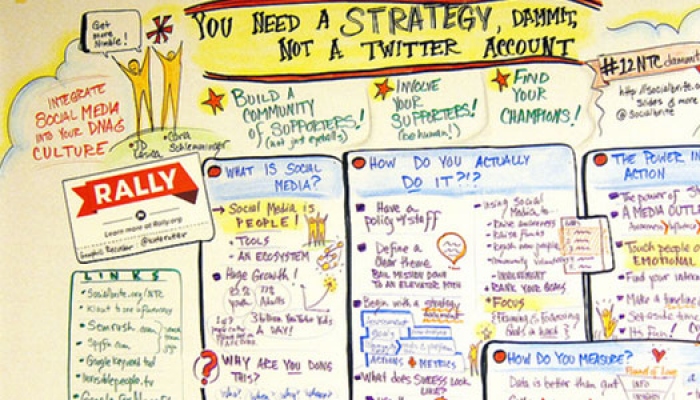 YOU NEED A STRATEGY, DAMMIT,
NOT A TWITTER ACCOUNT
Get
More
Nimble!
INTEGRATE
SOCIAL MEDIA
INTO YOUR DNA &
CULTURE
JD
Lasica
Cara
BUILD A
COMMUNITY
of SUPPORTERS!
(not just eyeballs)
INVOLVE
YOUR
SUPPORTERS!
(be human!)
FIND
YOUR
CHAMPIONS!
#12NTC dammit
http://socialbrite.or
Slides & more
@ Socialbrite
RALLY
Learn more at Rally.org
Graphic Recorder
LINKS
Socialbrite.org/NTC
Semrush.com
Spyfu.com
Google keyword tool
invisiblepeople.tv
WHAT IS SOCIAL
MEDIA?
Social Media is
PEOPLE!
TOOLS
AN ECOSYSTEM
Huge Growth!
youth Adults
A DAY!
WHY ARE YOU DOING
THIS?
Who? why? why? where?
HOW DO YOU ACTUALLY
DO IT?!?
Have a
policy & staff
Define a
clear theme
BOIL MISSION DOWN
TO AN ELEVATOR PITCH
Begin with a strategy
ACTIONS + METRICS
What does SUCCESS LOOK
LIKE?
Using Social
Media to...
Raise awareness
Raise funds
Reach new people
Community
INVOLVEMENT
RANK YOUR GOALS
FOCUS
THE POWER IN
ACTION
The power of S
A MEDIA OUTL
Awareness
Touch people
EMOTIONAL
Find your
Make a timeline
Set aside time
It's fun!
HOW DO YOU MEASURE?
Data is better than gut
INFO